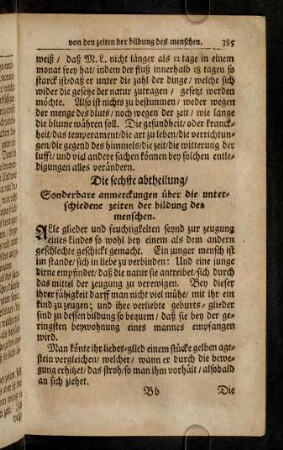 von den zeiten der bildung des menschen. 385
weiß / daß M. L. nicht länger als 12 tage in einem
monat frey hat / indem der fluß innerhalb 18 tagen so
starck ist / daß er unter die zahl der dinge / welche sich
wider die gesetze der natur zutragen / gesetzt werden
möchte. Also ist nichts zu bestimmen / weder wegen
der menge des bluts / noch wegen der zeit / wie lange
die blume währen soll. Die gesundheit / oder kranck-
heit / das temperament / die art zu leben / die verrichtun-
gen / die gegend des himmels / die zeit / die witterung der
lufft / und viel andere sachen können bey solchen entle-
digungen alles verändern.
Die sechste abtheilung /
Sonderbare anmerckungen über die unter-
schiedene zeiten der bildung des
menschen.
Alle glieder und feuchtigkeiten seynd zur zeugung
eines kindes so wohl bey einem als dem andern
geschlechte geschickt gemacht. Ein junger mensch ist
im stande / sich in liebe zu verbinden: Und eine junge
dirne empfindet / daß die natur sie antreibet / sich durch
das mittel der zeugung zu verewigen. Bey dieser
ihrer fähigkeit darff man nicht viel mühe / mit ihr ein
kind zu zeugen; und ihre verliebte geburts-glieder
sind zu dessen bildung so bequem / daß sie bey der ge-
ringsten beywohnung eines mannes empfangen
wird.
Man könte ihr liebes-glied einem stücke gelben agt-
stein vergleichen / welcher / wann er durch die bewe-
gung erhitzet / das stroh / so man ihm vorhält / alsobald
an sich ziehet.
Bb Die